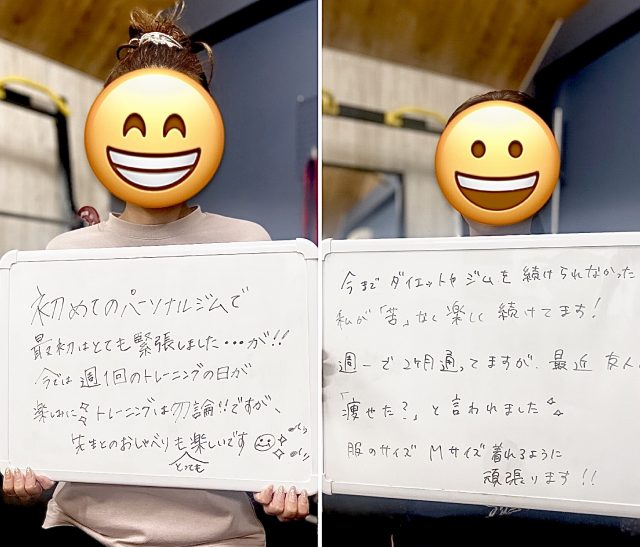 初めてのパーソナルジムで
最初はとても緊張しました…が!!
今では週1回のトレーニングの日が
楽しみに トレーニングは勿論!!ですが、
先生とのおしゃべりもとても楽しいです
今までダイエットやジムを続けられなかった
私が「苦」なく楽しく続けてます!
週一で2ヶ月通ってますが、最近 友人
「痩せた?」と言われました
服のサイズ Mサイズ着れるように
頑張ります!!